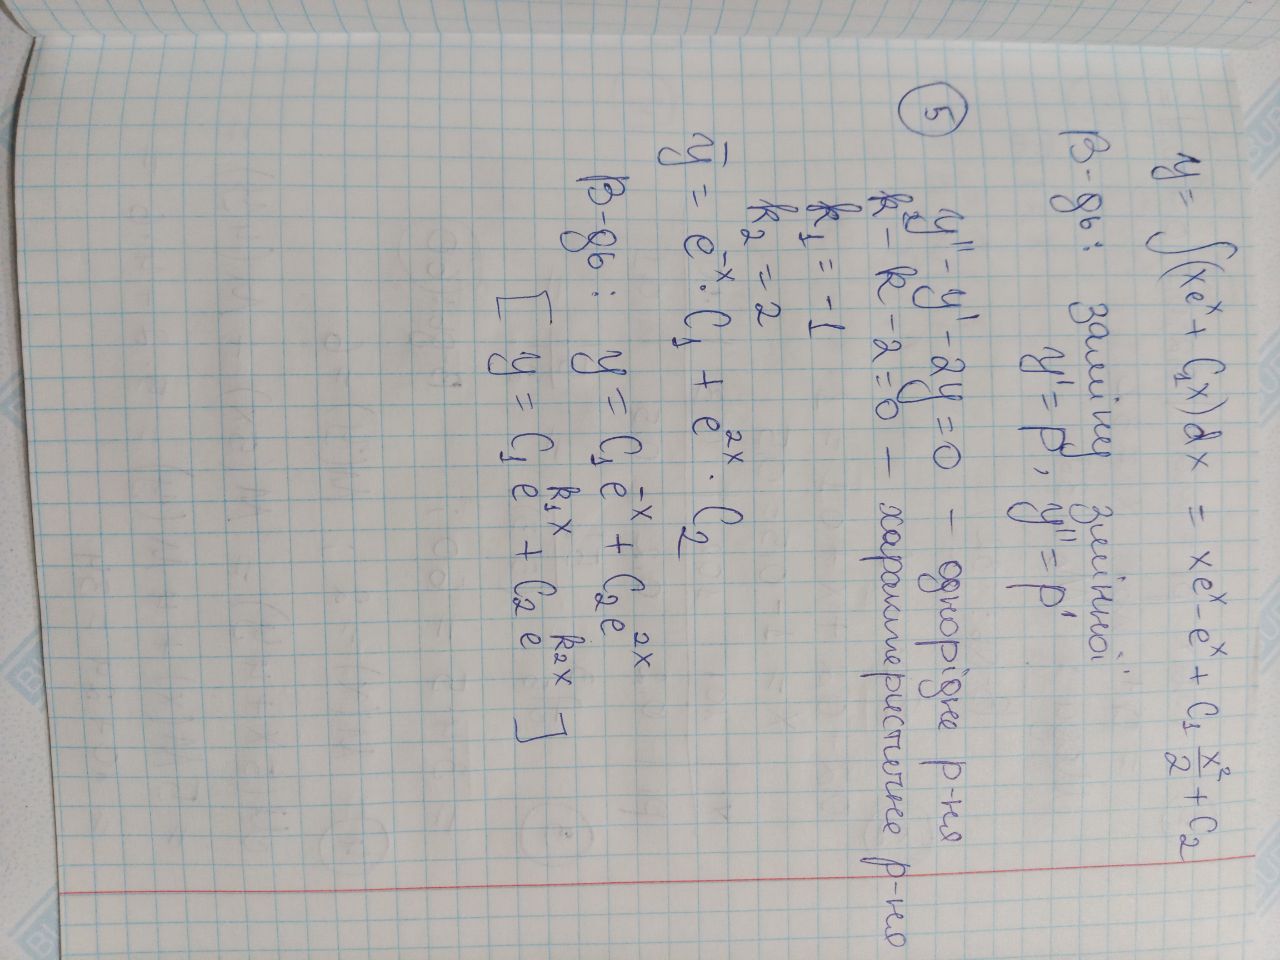 y = ∫(xeˣ + C₁x)dx = xeˣ - eˣ + C₁ x²/2 + C₂
В-дь: заміну змінної
y' = p, y'' = p'
5 y'' - y' - 2y = 0 - однорідне р-ня
k² - k - 2 = 0 - характеристичне р-ня
k₁ = -1
k₂ = 2
ȳ = e⁻ˣ · C₁ + e²ˣ · C₂
В-дь: y = C₁ e⁻ˣ + C₂ e²ˣ
[ y = C₁ e^(k₁x) + C₂ e^(k₂x) ]